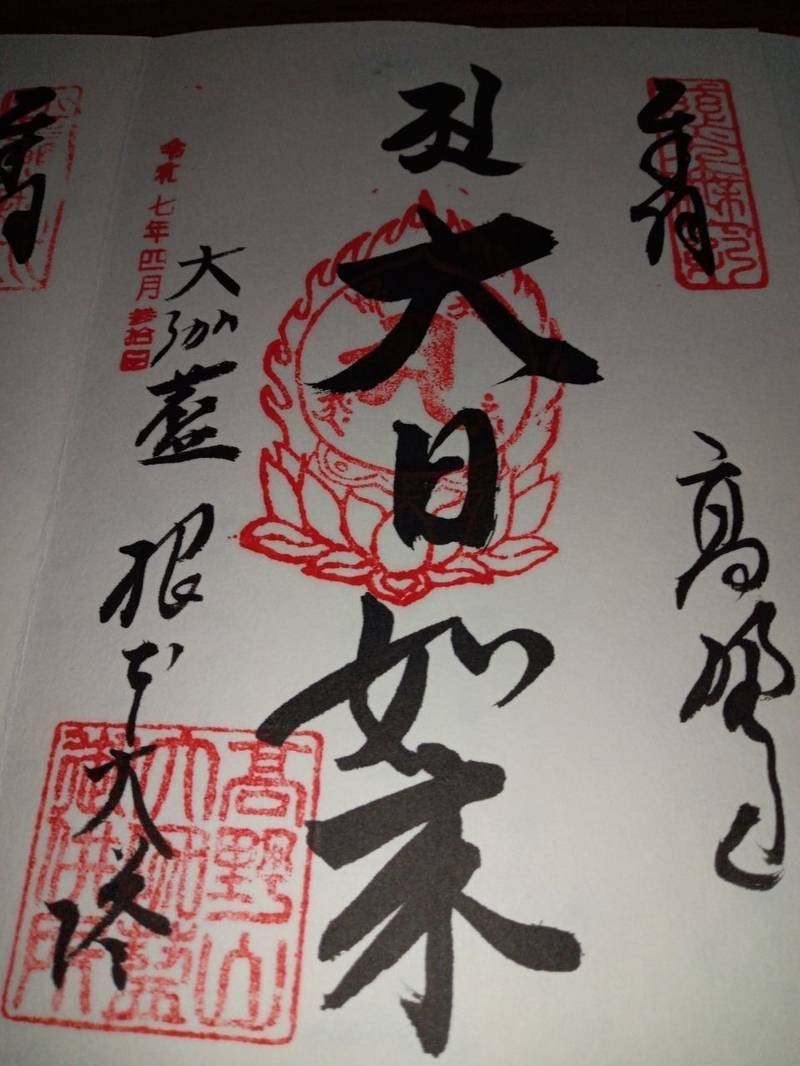 奉拝
高野山
大日如来
大伽藍
根本大塔
令和七年四月参拾日
高野山
御供所